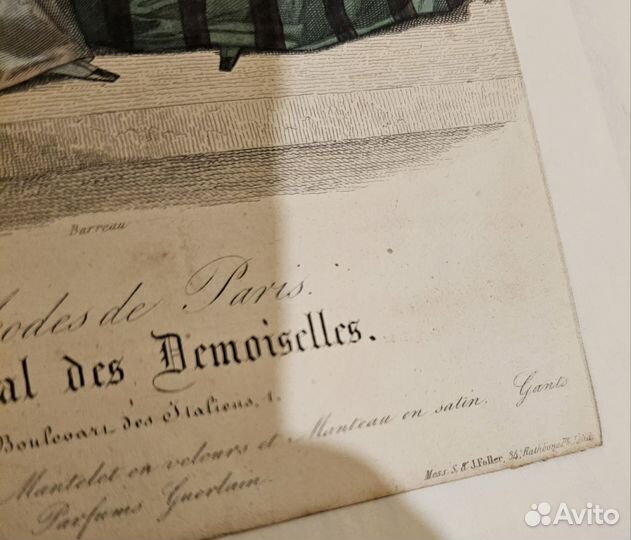 Barreau
odes de Paris.
al des Demoiselles.
Boulevart des Italiens, 1.
Mantelet en velours et Manteau en satin. Gants
Parfums Guerlain.
Mess. S. & J. Fuller, 34, Rathbone Pl.
Avito